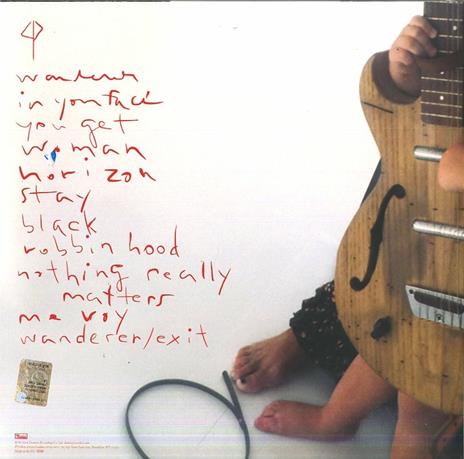 wanderer
in your face
you get
woman
horizon
stay
black
robbin hood
nothing really
matters
me voy
wanderer/exit